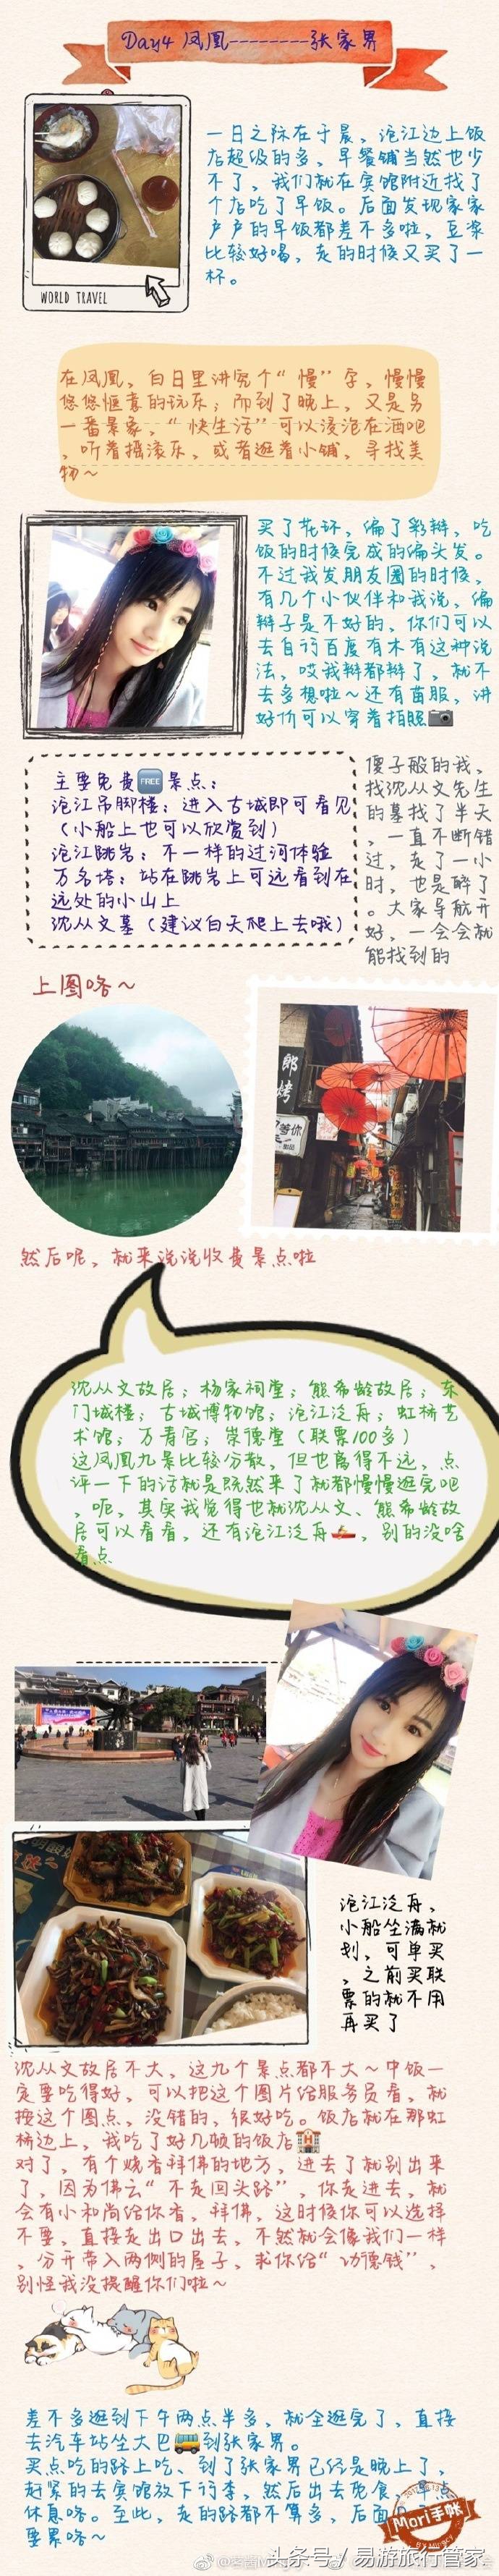 Day4 凤凰--------张家界
一日之际在于晨，沱江边上饭
店超级的多，早餐铺当然也少
不了，我们就在宾馆附近找了
个店吃了早饭。后面发现家家
户户的早饭都差不多啦，豆浆
比较好喝，走的时候又买了一
杯。
WORLD TRAVEL
在凤凰，白日里讲究个“慢”字，慢慢
悠悠惬意的玩乐；而到了晚上，又是另
一番景象，“快生活”可以浸泡在酒吧
，听着摇滚乐，或者逛着小铺，寻找美
物～
买了花环，编了彩辫，吃
饭的时候完成的编头发。
不过我发朋友圈的时候，
有几个小伙伴和我说，编
辫子是不好的，你们可以
去自行百度有木有这种说
法，哎我辫都辫了，就不
去多想啦～还有苗服，讲
好价可以穿着拍照
主要免费FREE景点：
沱江吊脚楼：进入古城即可看见
（小船上也可以欣赏到）
沱江跳岩：不一样的过河体验
万名塔：站在跳岩上可远看到在
远处的小山上
沈从文墓（建议白天爬上去哦）
傻子般的我，
找沈从文先生
的墓找了半天
，一直不断错
过，走了一小
时，也是醉了
。大家导航开
好，一会会就
能找到的
上图咯～
郎
烤
等你
然后呢，就来说说收费景点啦
沈从文故居；杨家祠堂；熊希龄故居；东
门城楼；古城博物馆；沱江泛舟；虹桥艺
术馆；万寿宫；崇德堂（联票100多）
这凤凰九景比较分散，但也离得不远，点
评一下的话就是既然来了就都慢慢逛完吧
，呃，其实我觉得也就沈从文、熊希龄故
居可以看看，还有沱江泛舟，别的没啥
看点
沱江泛舟，
小船坐满就
划，可单买
，之前买联
票的就不用
再买了
沈从文故居不大，这九个景点都不大～中饭一
定要吃得好，可以把这个图片给服务员看，就
按这个图点，没错的，很好吃。饭店就在那虹
桥边上，我吃了好几顿的饭店
对了，有个烧香拜佛的地方，进去了就别出来
了，因为佛云“不走回头路”，你走进去，就
会有小和尚给你香，拜佛，这时候你可以选择
不要，直接走出口出去，不然就会像我们一样
，分开带入两侧的屋子，求你给“功德钱”，
别怪我没提醒你们啦～
差不多逛到下午两点半多，就全逛完了，直接
去汽车站坐大巴到张家界。
买点吃的路上吃、到了张家界已经是晚上了，
赶紧的去宾馆放下行李，然后出去觅食，早点
休息咯。至此，走的路都不算多，后面
要累咯～
Mori手帐
头条号／易游旅行管家